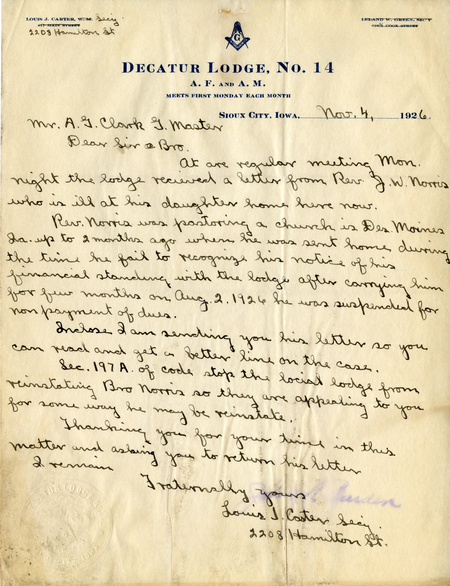 LOUIS J. CARTER, W. M. Secy.
2208 Hamilton St
LELAND W. GREEN, SEC'Y
G
DECATUR LODGE, NO. 14
A. F. AND A. M.
MEETS FIRST MONDAY EACH MONTH
SIOUX CITY, IOWA, Nov. 4, 1926.
Mr. A. G. Clark G. Master
Dear Sir & Bro.
At are regular meeting Mon.
night the lodge recieved a letter from Rev. J. W. Norris
who is ill at his daughter home here now.
Rev. Norris was pastoring a church is Des Moines
Ia. up to 2 months ago when he was sent home during
the time he fail to recognize his notice of his
financial standing with the lodge after carrying him
for few months on Aug. 2, 1926 he was suspended for
non payment of dues.
Inclose I am sending you his letter so you
can read and get a better line on the case.
Sec. 197 A. of code stop the locial lodge from
reinstating Bro Norris so they are appealing to you
for some way he may be reinstate.
Thanking you for your time in this
matter and asking you to return his letter
I remain
Fraternally yours
Louis J. Carter Secy.
2208 Hamilton St.